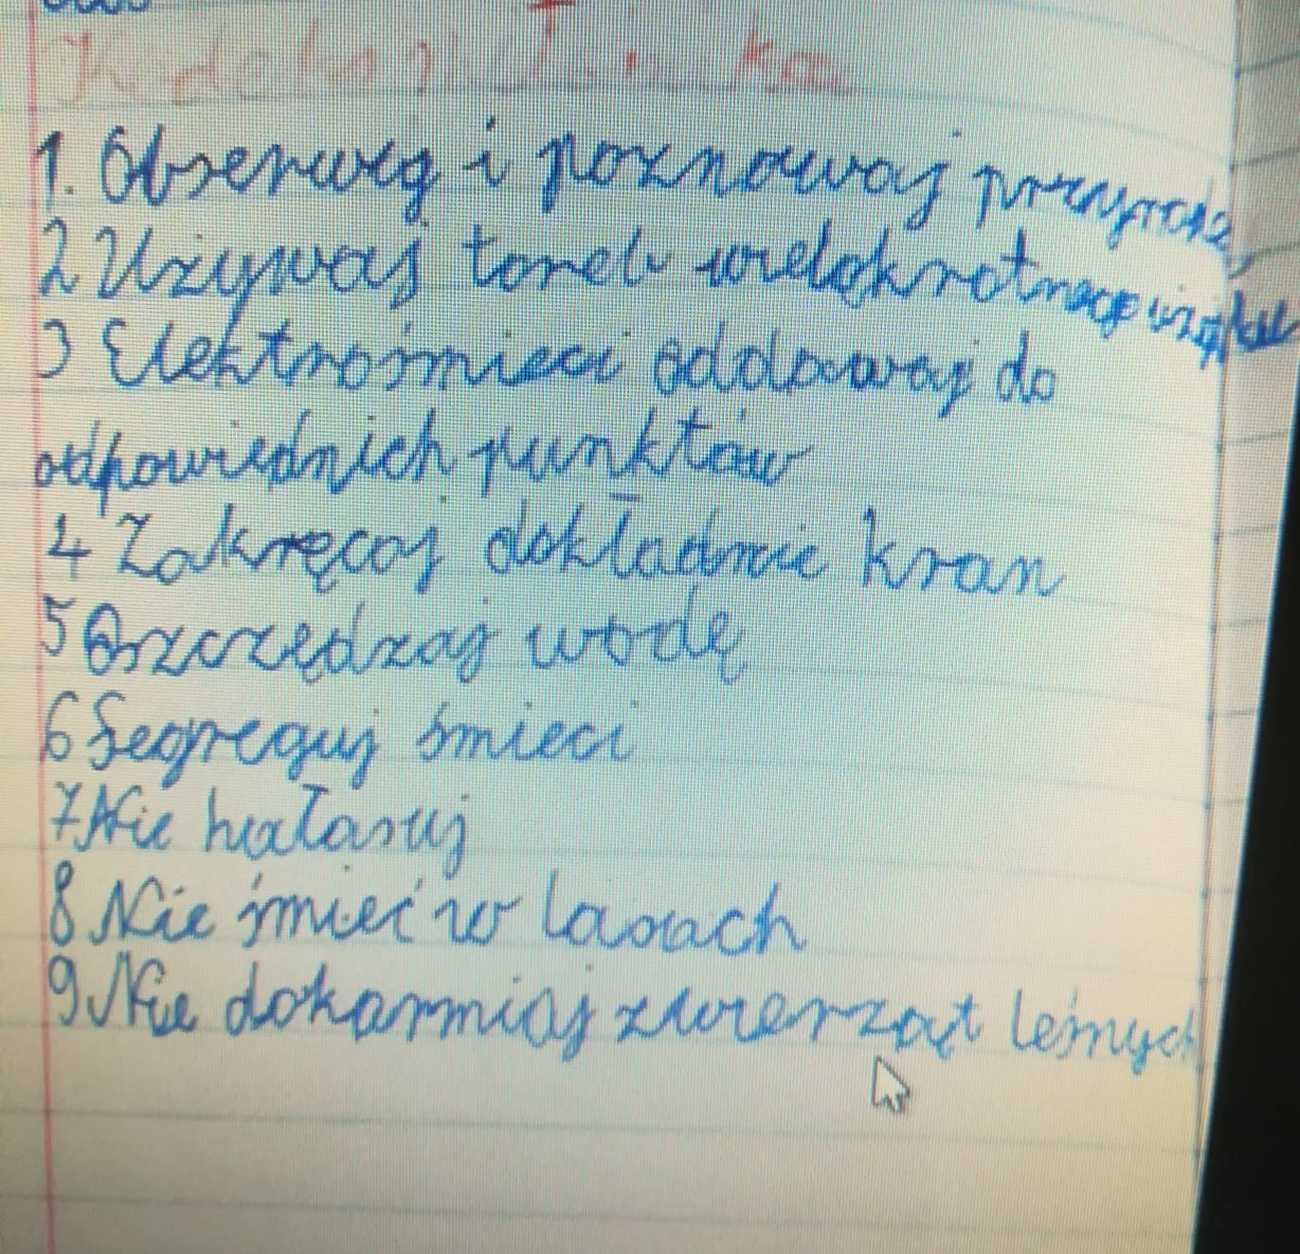 1. Obserwuj i poznawaj przyrodę,
2 Używaj toreb wielokrotnego użytku
3 Elektrośmieci oddawaj do
odpowiednich punktów
4 Zakręcaj dokładnie kran
5 Oszczędzaj wodę
6 Segreguj śmieci
7 Nie hałasuj
8 Nie śmieć w lasach
9 Nie dokarmiaj zwierząt leśnych